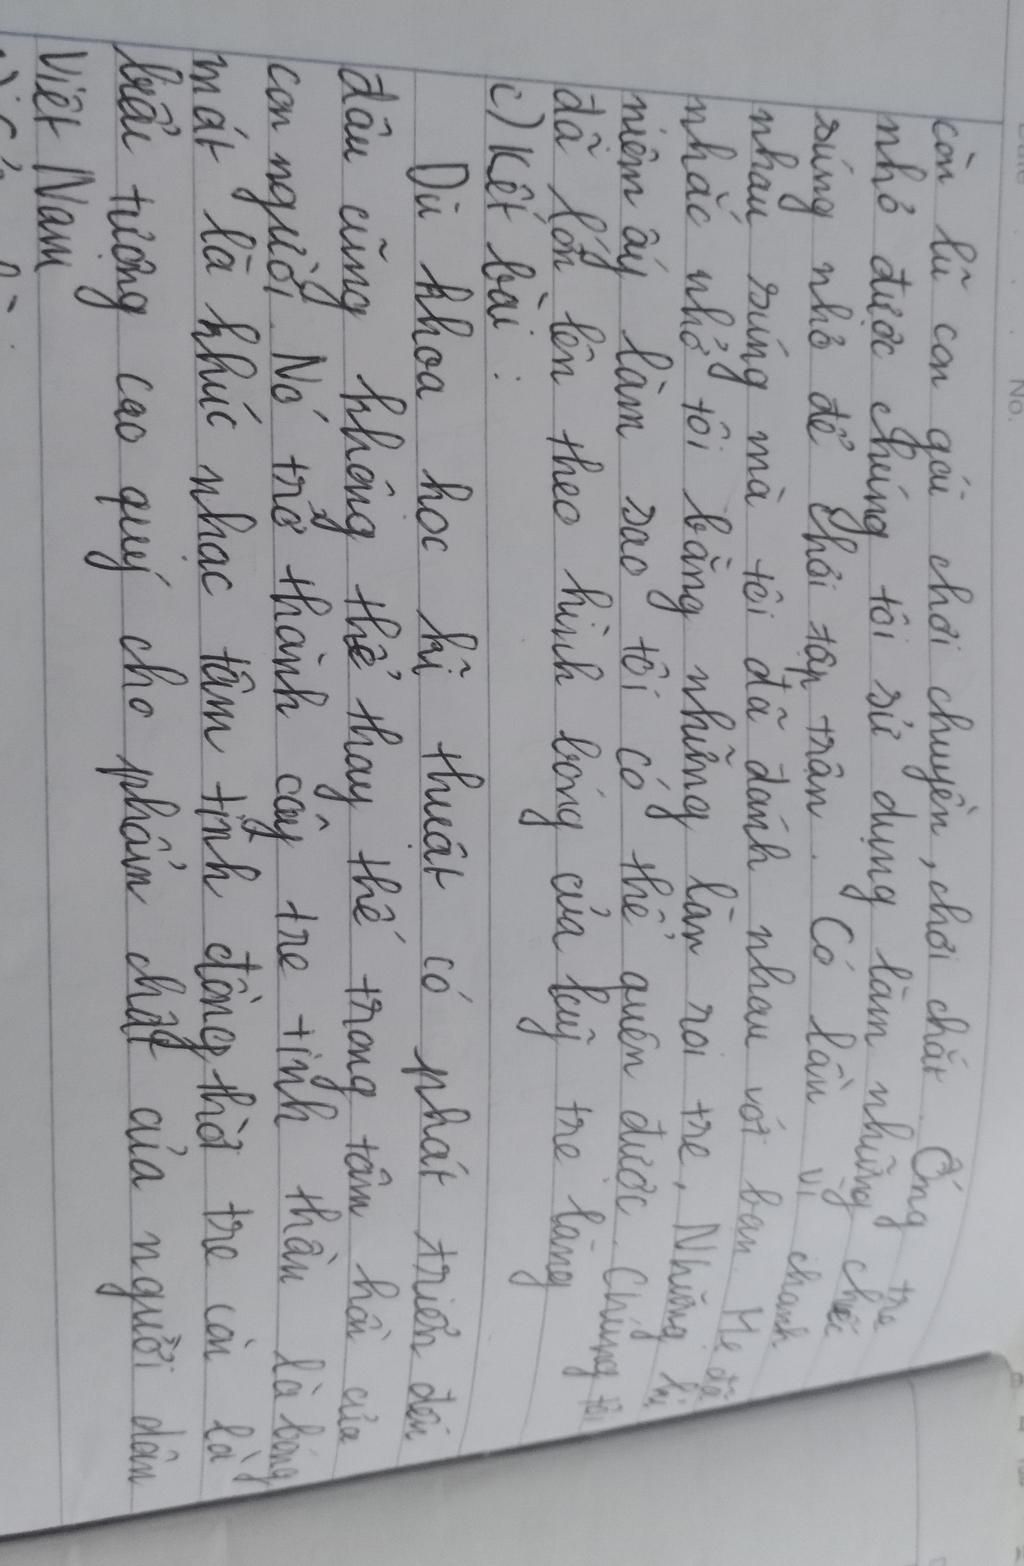 còn lũ con gái chơi chuyền, chơi chắt. Ống tre
nhỏ được chúng tôi sử dụng làm những chiếc
súng nhỏ để chơi tập trận. Có lần vì chanh
nhau súng mà tôi đã đánh nhau với bạn. Mẹ đã
nhắc nhở tôi bằng những làn roi tre, Những kỉ
niệm ấy làm sao tôi có thể quên được. Chúng tôi
đã lớn lên theo hình bóng của luỹ tre làng
c) Kết bài:
Dù khoa học kĩ thuật có phát triển đến
đâu cũng không thể thay thế trong tâm hồn của
con người. Nó trở thành cây tre tinh thần là bóng
mát là khúc nhạc tâm tình đồng thời tre còn là
biểu tượng cao quý cho phẩm chất của người dân
Việt Nam